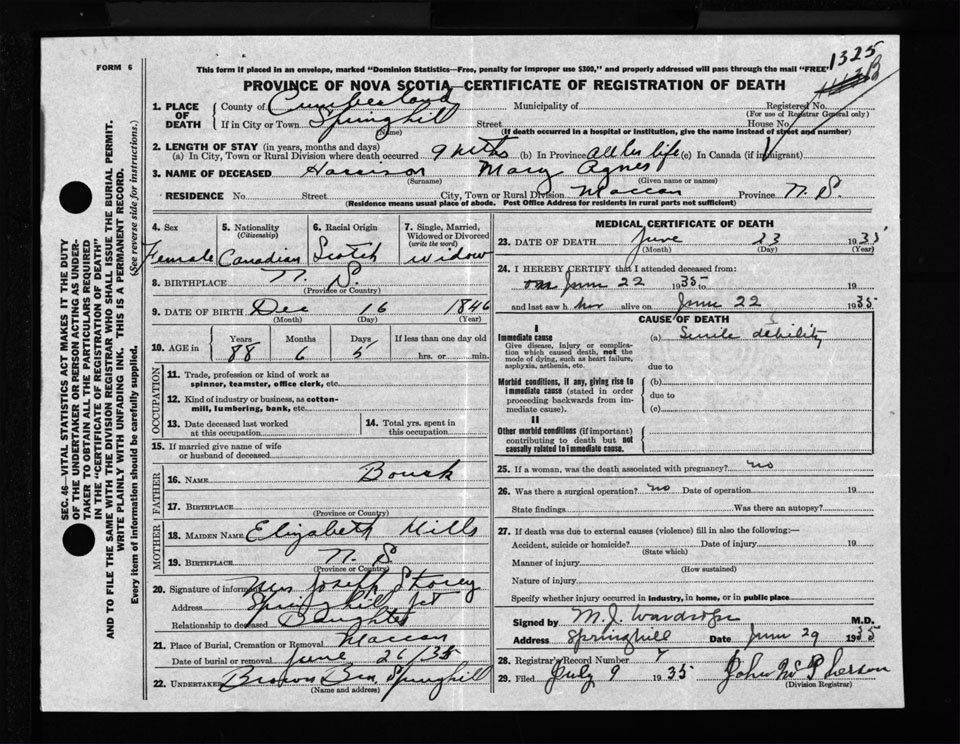 FORM 6
This form if placed in an envelope, marked "Dominion Statistics—Free, penalty for improper use $300," and properly addressed will pass through the mail "FREE."
1325
PROVINCE OF NOVA SCOTIA—CERTIFICATE OF REGISTRATION OF DEATH
1. PLACE OF DEATH
County of Cumberland Municipality of Registered No.
(For use of Registrar General only)
If in City or Town Springhill Street House No.
(Name) (If death occurred in a hospital or institution, give the name instead of street and number)
2. LENGTH OF STAY (in years, months and days)
(a) In City, Town or Rural Division where death occurred 9 mths (b) In Province all her life (c) In Canada (if immigrant)
3. NAME OF DECEASED Harrison Mary Agnes
(Surname) (Given name or names)
RESIDENCE No. Street City, Town or Rural Division Maccan Province N.S.
(Residence means usual place of abode. Post Office Address for residents in rural parts not sufficient)
4. Sex
Female
5. Nationality (Citizenship)
Canadian
6. Racial Origin
Scotch
7. Single, Married, Widowed or Divorced (write the word)
Widow
8. BIRTHPLACE N. S.
(Province or Country)
9. DATE OF BIRTH Dec 16 1846
(Month) (Day) (Year)
10. AGE in Years Months Days If less than one day old
88 6 5 hrs. or min.
OCCUPATION
11. Trade, profession or kind of work as spinner, teamster, office clerk, etc.
12. Kind of industry or business, as cotton-mill, lumbering, bank, etc.
13. Date deceased last worked at this occupation
14. Total yrs. spent in this occupation
15. If married give name of wife or husband of deceased
FATHER
16. NAME
17. BIRTHPLACE
(Province or Country)
MOTHER
18. MAIDEN NAME Elizabeth Mills
19. BIRTHPLACE N. S
(Province or Country)
20. Signature of informant Mrs Joseph Storey
Address Springhill Jct
Relationship to deceased Daughter
21. Place of Burial, Cremation or Removal Maccan
Date of burial or removal June 26/35
22. UNDERTAKER Brown Bro, Springhill
(Name and address)
MEDICAL CERTIFICATE OF DEATH
23. DATE OF DEATH June 23 1935
(Month) (Day) (Year)
24. I HEREBY CERTIFY that I attended deceased from:
on June 22 1935 to 19
and last saw her alive on June 22 1935
CAUSE OF DEATH
I
Immediate cause
Give disease, injury or complication which caused death, not the mode of dying, such as heart failure, asphyxia, asthenia, etc.
(a) Senile debility
due to
Morbid conditions, if any, giving rise to immediate cause (stated in order proceeding backwards from immediate cause).
(b)
due to
(c)
II
Other morbid conditions (if important) contributing to death but not causally related to immediate cause.
25. If a woman, was the death associated with pregnancy? no
26. Was there a surgical operation? no Date of operation 19
State findings Was there an autopsy?
27. If death was due to external causes (violence) fill in also the following:—
Accident, suicide or homicide? Date of injury 19
(State which)
Manner of injury
(How sustained)
Nature of injury
Specify whether injury occurred in industry, in home, or in public place
Signed by M.J. Wardrope M.D.
Address Springhill Date June 29 1935
28. Registrar's Record Number 7
29. Filed July 9 1935 John McPherson
(Division Registrar)
SEC. 46—VITAL STATISTICS ACT MAKES IT THE DUTY
OF THE UNDERTAKER OR PERSON ACTING AS UNDER-
TAKER TO OBTAIN ALL THE PARTICULARS REQUIRED
IN THE "CERTIFICATE OF REGISTRATION OF DEATH"
AND TO FILE THE SAME WITH THE DIVISION REGISTRAR WHO SHALL ISSUE THE BURIAL PERMIT.
WRITE PLAINLY WITH UNFADING INK. THIS IS A PERMANENT RECORD.
Every item of information should be carefully supplied. (See reverse side for instructions.)